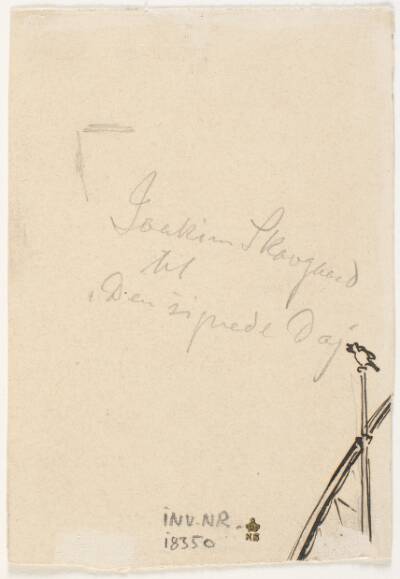 Joakim Skovgaard
til
"Den signede Dag"
INV.NR.
18350